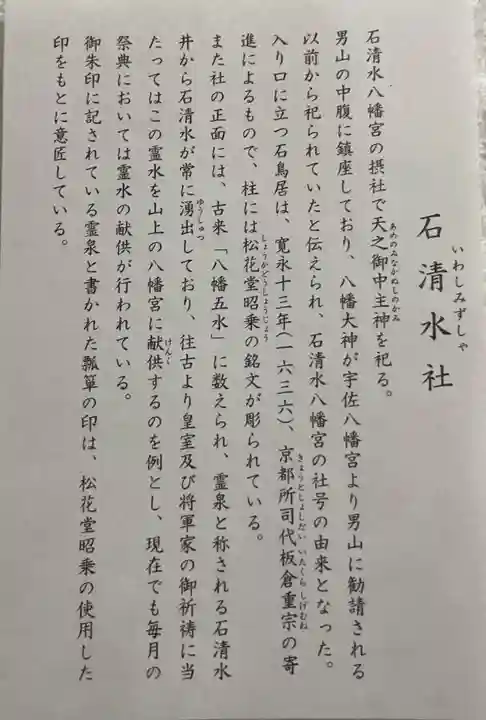 いわしみずしゃ
石清水社
石清水八幡宮の摂社で天之御中主神を祀る。
あめのみなかぬしのかみ
男山の中腹に鎮座しており、八幡大神が宇佐八幡宮より男山に勧請される
以前から祀られていたと伝えられ、石清水八幡宮の社号の由来となった。
入り口に立つ石鳥居は、寛永十三年(一六三六)、京都所司代板倉重宗の寄
きょうとしょしだいいたくらしげむね
進によるもので、柱には松花堂昭乗の銘文が彫られている。
しょうかどうしょうじょう
また社の正面には、古来「八幡五水」に数えられ、霊泉と称される石清水
井から石清水が常に湧出しており、往古より皇室及び将軍家の御祈祷に当
ゆうしゅつ
たってはこの霊水を山上の八幡宮に献供するのを例とし、現在でも毎月の
けんく
祭典においては霊水の献供が行われている。
御朱印に記されている霊泉と書かれた瓢箪の印は、松花堂昭乗の使用した
印をもとに意匠している。